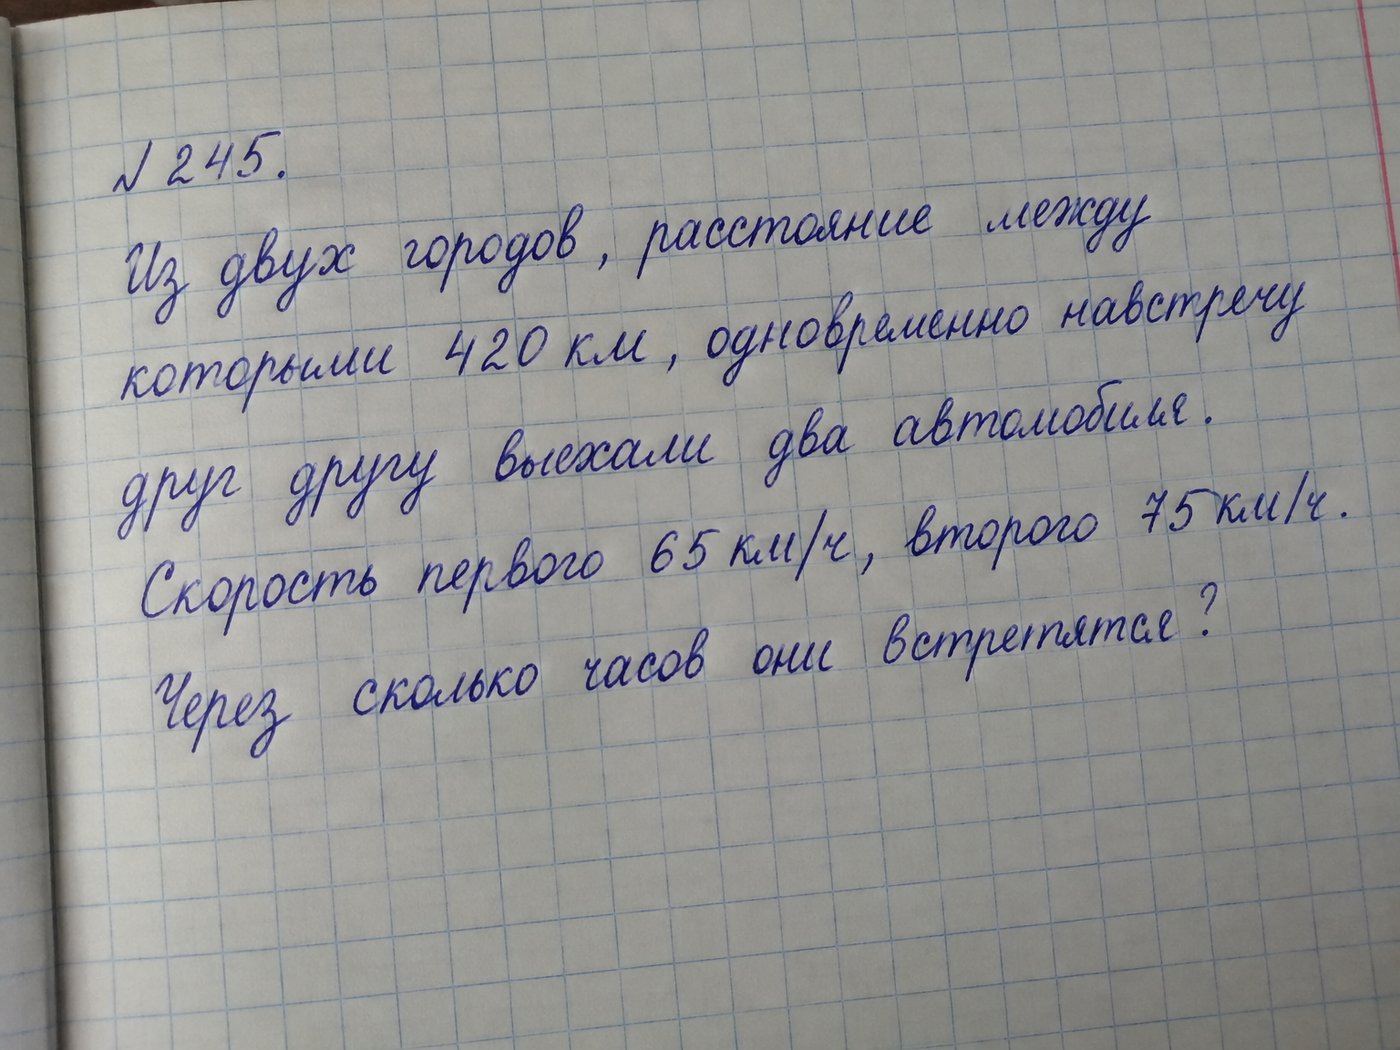 № 245.
Из двух городов, расстояние между
которыми 420 км, одновременно навстречу
друг другу выехали два автомобиля.
Скорость первого 65 км/ч, второго 75 км/ч.
Через сколько часов они встретятся?